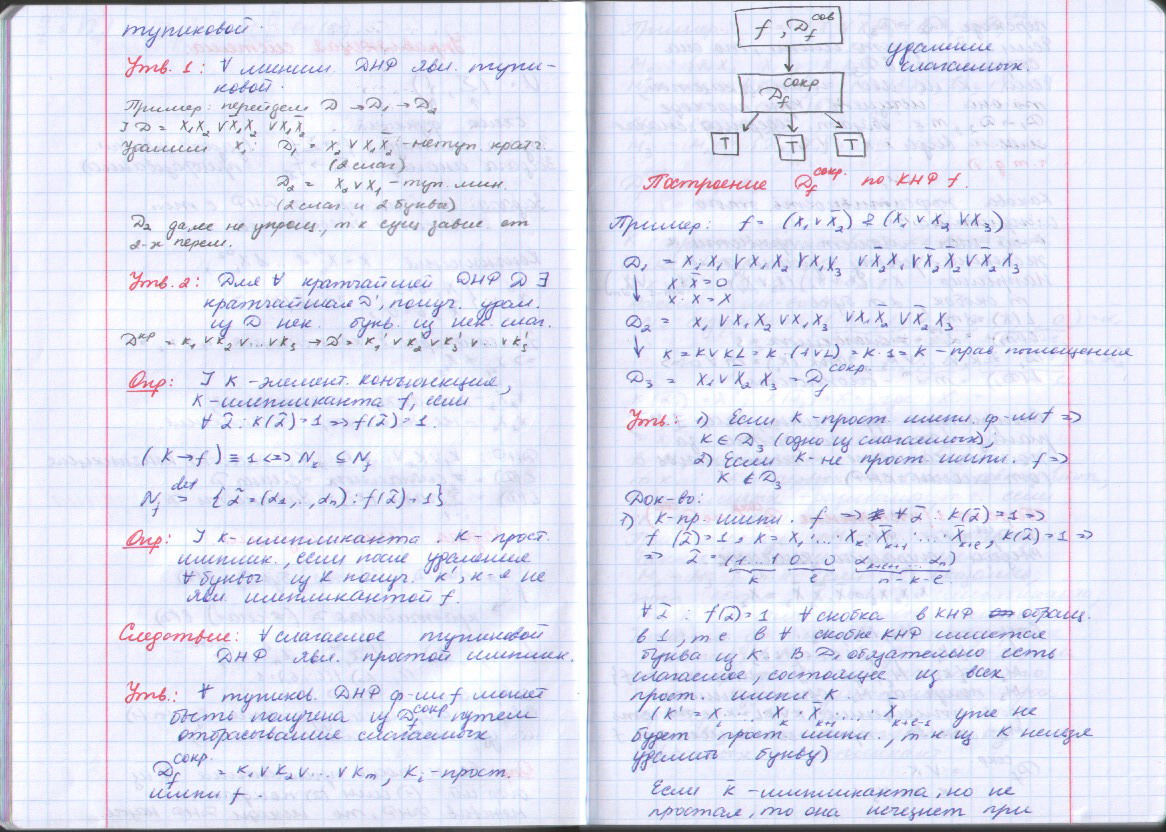 тупиковой.
Утв. 1: ∀ миним. ДНФ явл. тупи-
ковой.
Пример: перейдем D → D₁ → D₂
] D = x₁x₂ ∨ x̄₁x₂ ∨ x₁x̄₂
Удалим x₁: D₁ = x₂ ∨ x₁x̄₂ - нетуп. кратч.
(2 слаг)
D₂ = x₂ ∨ x₁ - туп. мин.
(2 слаг и 2 буквы)
D₂ далее не упрощ, т к сущ. завис от
2-х перем.
Утв. 2: Для ∀ кратчайшей ДНФ D ∃
кратчайшая D', получ. удал.
из D нек. букв. из нек. слаг.
Dᵏᵖ = K₁ ∨ K₂ ∨ ... ∨ K₃ → D' = K₁' ∨ K₂' ∨ K₃' ∨ ... ∨ K₃'
Опр: ] K - элемент. конъюнкция,
K - импликанта f, если
∀ α̃: K(α̃) = 1 => f(α̃) = 1
(K → f) ≡ 1 <=> Nₖ ⊆ N_f
N_f =def {α̃ = (α₁, .., αₙ) : f(α̃) = 1}
Опр: ] K - импликанта. K - прост.
имплик., если после удаления
∀ буквы из K получ. K', к-я не
явл. импликантой f.
Следствие: ∀ слагаемое тупиковой
ДНФ явл. простой имплик.
Утв.: ∀ тупиков. ДНФ ф-ии f может
быть получена из D_f^сокр путем
отбрасывания слагаемых
D_f^сокр. = K₁ ∨ K₂ ∨ ... ∨ Kₘ, Kᵢ - прост.
импл f.
f, D_f^сов
удаление
слагаемых.
D_f^сокр
T T T
Построение D_f^сокр. по КНФ f.
Пример: f = (x₁ ∨ x̄₂) & (x₁ ∨ x₂ ∨ x₃)
D₁ = x₁x₁ ∨ x₁x₂ ∨ x₁x₃ ∨ x̄₂x₁ ∨ x̄₂x₂ ∨ x̄₂x₃
x · x̄ = 0
x · x = x
D₂ = x₁ ∨ x₁x₂ ∨ x₁x₃ ∨ x₁x̄₂ ∨ x̄₂x₃
K = K ∨ KL = K · (1 ∨ L) = K · 1 = K - прав. поглощения
D₃ = x₁ ∨ x̄₂ x₃ = D_f^сокр.
Утв: 1) Если K - прост импл. ф-ии f =>
K ∈ D₃ (одно из слагаемых);
2) Если K - не прост. импл. f =>
K ∉ D₃
Док-во:
1) K - пр. импл. f => ∀ α̃: K(α̃) = 1 =>
f(α̃) = 1, K = x₁ · ... · xₖ · x̄ₖ₊₁ · ... · x̄ₖ₊ₑ, K(α̃) = 1 =>
=> α̃ = (1...1 0...0 αₖ₊ₑ₊₁ ... αₙ)
k e n-k-e
∀ α̃: f(α̃) = 1 ∀ скобка в КНФ обращ.
в 1, т е в ∀ скобке КНФ имеется
буква из K. В D₁ обязательно есть
слагаемое, состоящее из всех
прост. импл K.
(K' = x₁ · ... · xₖ · x̄ₖ₊₁ · ... · x̄ₖ₊ₑ₋₁ уже не
будет прост импл., т к из K нельзя
удалить букву)
Если K - импликанта, но не
простая, то она исчезнет при